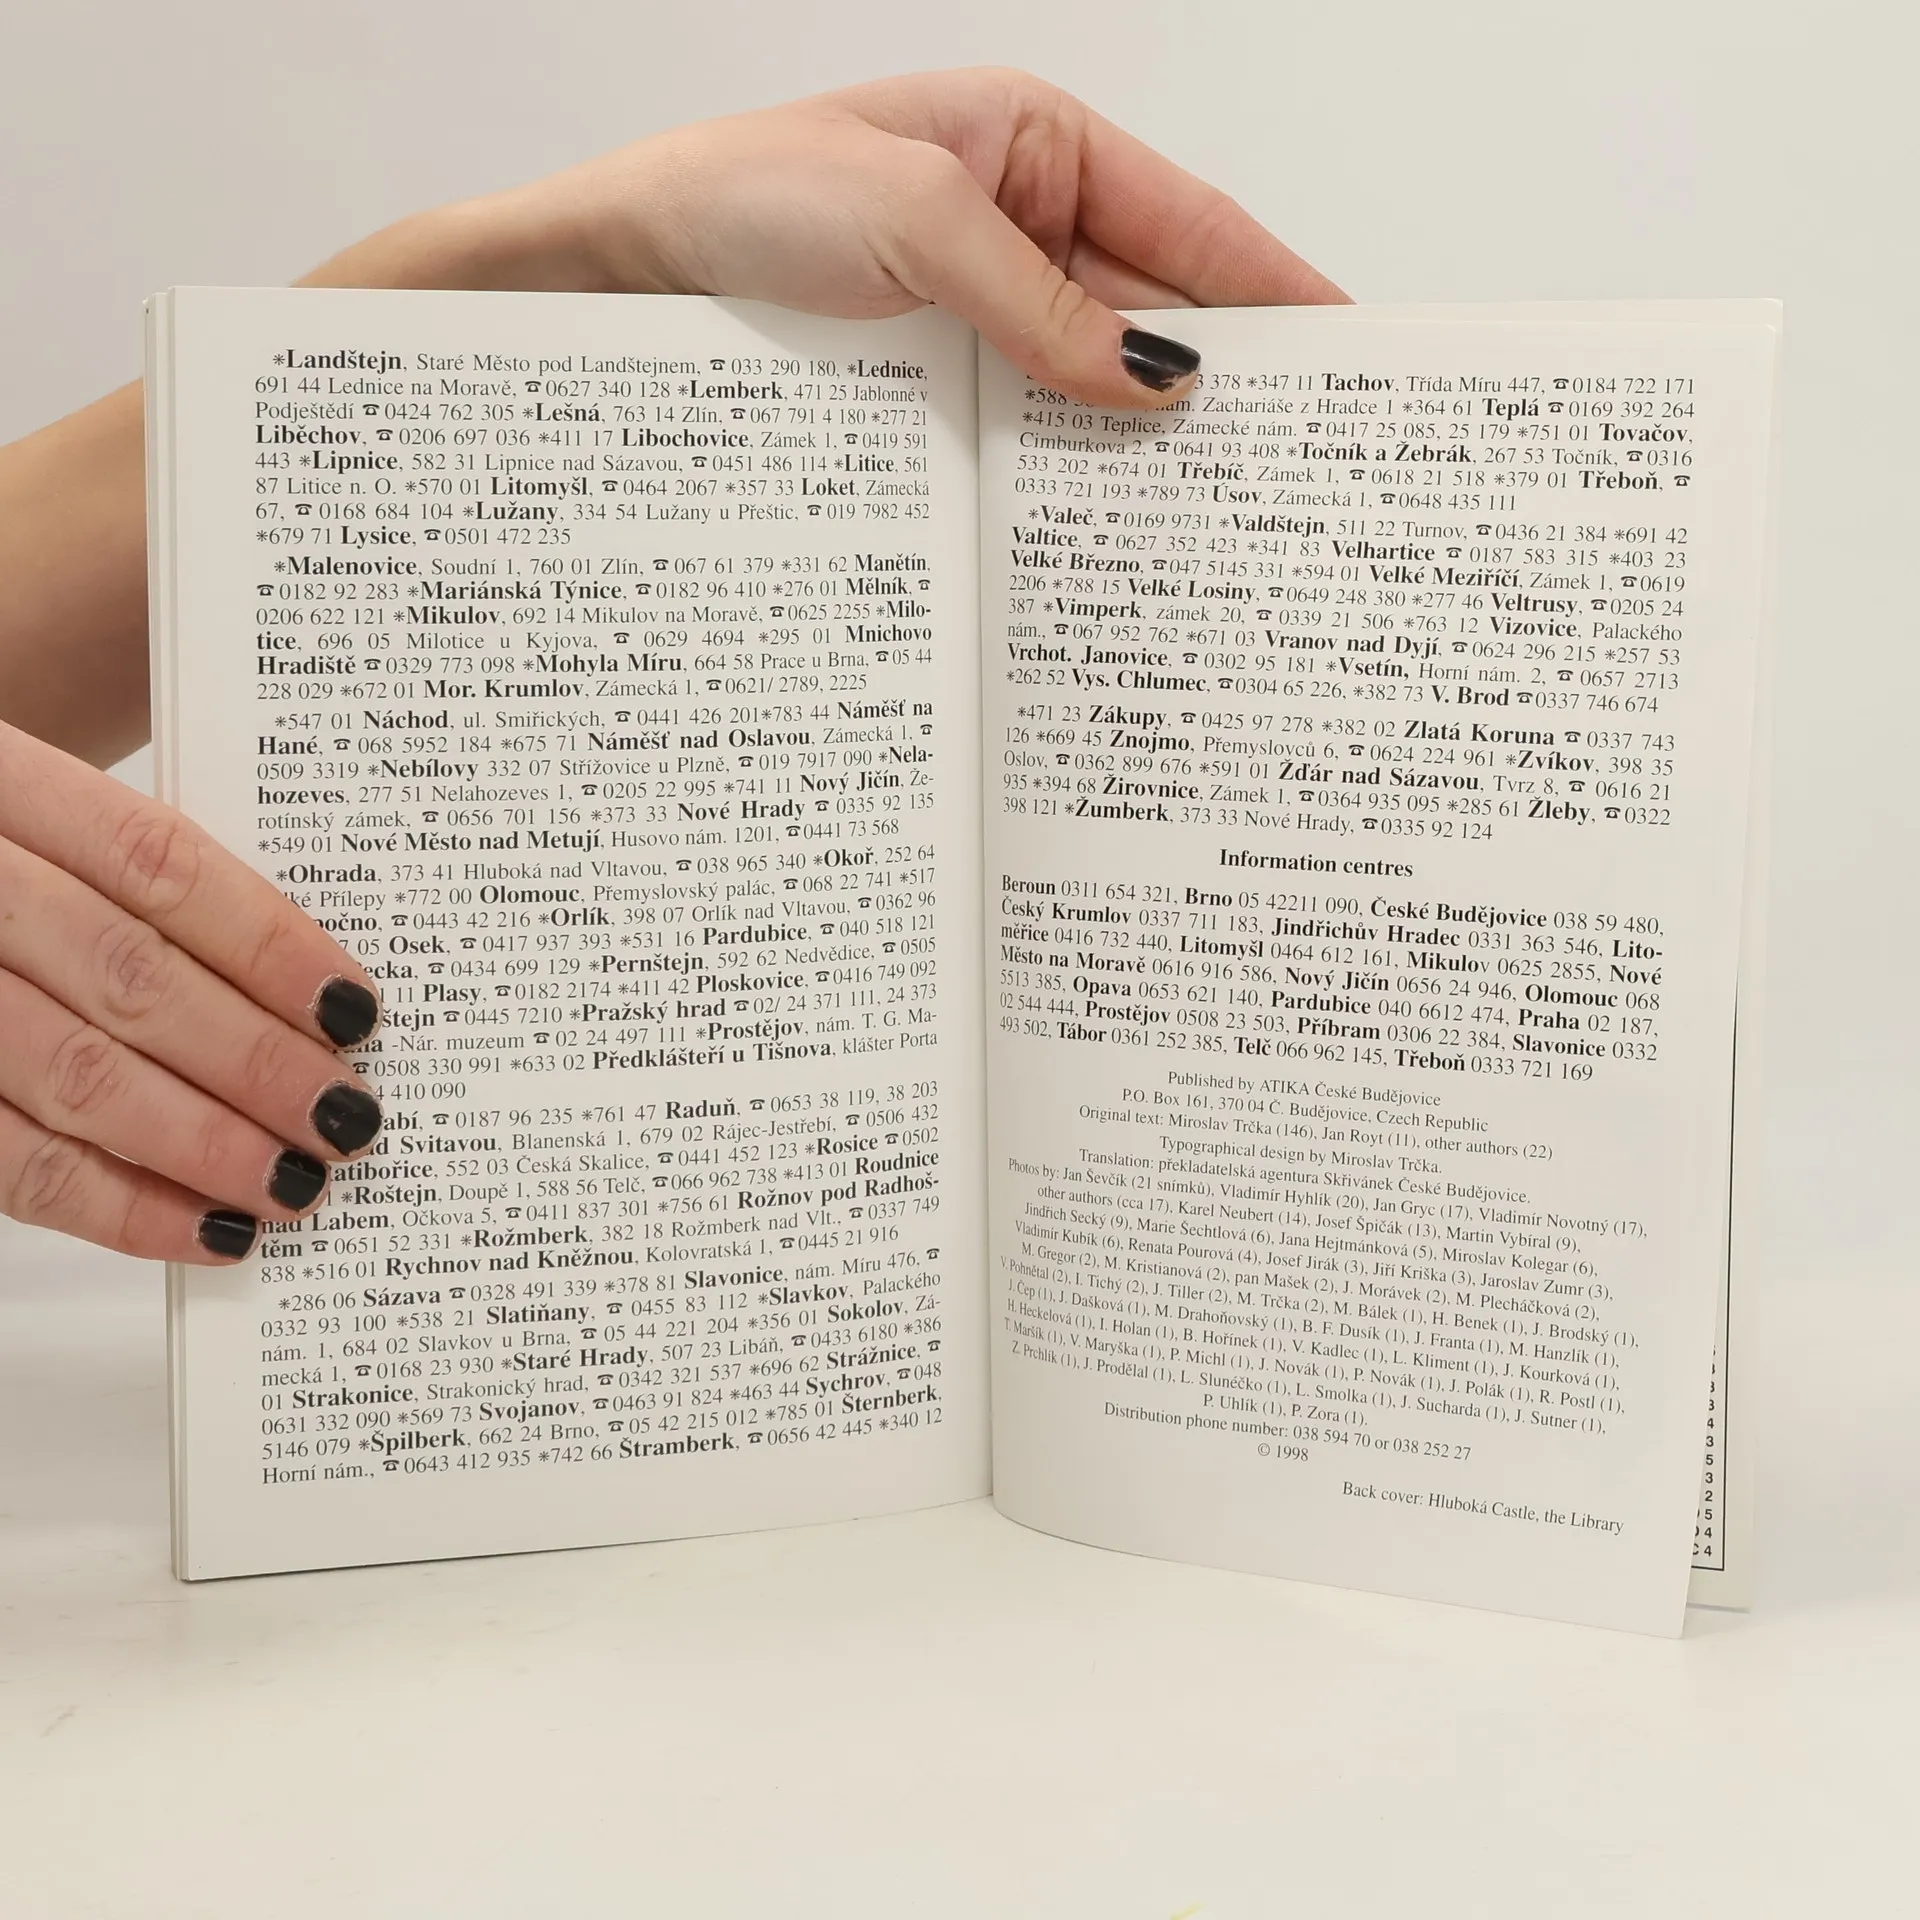 ✳Landštejn, Staré Město pod Landštejnem, ☎ 033 290 180, ✳Lednice,
691 44 Lednice na Moravě, ☎0627 340 128 ✳Lemberk, 471 25 Jablonné v
Podještědí ☎0424 762 305 ✳Lešná, 763 14 Zlín, ☎067 791 4 180 ✳277 21
Liběchov, ☎ 0206 697 036 ✳411 17 Libochovice, Zámek 1, ☎0419 591
443 ✳Lipnice, 582 31 Lipnice nad Sázavou, ☎0451 486 114 ✳Litice, 561
87 Litice n. O. ✳570 01 Litomyšl, ☎0464 2067 ✳357 33 Loket, Zámecká
67, ☎ 0168 684 104 ✳Lužany, 334 54 Lužany u Přeštic, ☎ 019 7982 452
✳679 71 Lysice, ☎0501 472 235
✳Malenovice, Soudní 1, 760 01 Zlín, ☎ 067 61 379 ✳331 62 Manětín,
☎0182 92 283 ✳Mariánská Týnice, ☎0182 96 410 ✳276 01 Mělník, ☎
0206 622 121 ✳Mikulov, 692 14 Mikulov na Moravě, ☎0625 2255 ✳Milo-
tice, 696 05 Milotice u Kyjova, ☎ 0629 4694 ✳295 01 Mnichovo
Hradiště ☎0329 773 098 ✳Mohyla Míru, 664 58 Prace u Brna, ☎05 44
228 029 ✳672 01 Mor. Krumlov, Zámecká 1, ☎0621/ 2789, 2225
✳547 01 Náchod, ul. Smiřických, ☎ 0441 426 201✳783 44 Náměšť na
Hané, ☎ 068 5952 184 ✳675 71 Náměšť nad Oslavou, Zámecká 1, ☎
0509 3319 ✳Nebílovy 332 07 Střížovice u Plzně, ☎ 019 7917 090 ✳Nela-
hozeves, 277 51 Nelahozeves 1, ☎0205 22 995 ✳741 11 Nový Jičín, Že-
rotínský zámek, ☎ 0656 701 156 ✳373 33 Nové Hrady ☎ 0335 92 135
✳549 01 Nové Město nad Metují, Husovo nám. 1201, ☎0441 73 568
✳Ohrada, 373 41 Hluboká nad Vltavou, ☎038 965 340 ✳Okoř, 252 64
Přílepy ✳772 00 Olomouc, Přemyslovský palác, ☎ 068 22 741 ✳517
☎0443 42 216 ✳Orlík, 398 07 Orlík nad Vltavou, ☎0362 96
05 Osek, ☎0417 937 393 ✳531 16 Pardubice, ☎040 518 121
☎ 0434 699 129 ✳Pernštejn, 592 62 Nedvědice, ☎0505
11 Plasy, ☎0182 2174 ✳411 42 Ploskovice, ☎0416 749 092
☎0445 7210 ✳Pražský hrad ☎02/ 24 371 111, 24 373
-Nár. muzeum ☎02 24 497 111 ✳Prostějov, nám. T. G. Ma-
☎0508 330 991 ✳633 02 Předklášteří u Tišnova, klášter Porta
410 090
☎ 0187 96 235 ✳761 47 Raduň, ☎0653 38 119, 38 203
Svitavou, Blanenská 1, 679 02 Rájec-Jestřebí, ☎ 0506 432
552 03 Česká Skalice, ☎0441 452 123 ✳Rosice ☎0502
✳Roštejn, Doupě 1, 588 56 Telč, ☎066 962 738 ✳413 01 Roudnice
nad Labem, Očkova 5, ☎0411 837 301 ✳756 61 Rožnov pod Radhoš-
těm ☎0651 52 331 ✳Rožmberk, 382 18 Rožmberk nad Vlt., ☎0337 749
838 ✳516 01 Rychnov nad Kněžnou, Kolovratská 1, ☎0445 21 916
✳286 06 Sázava ☎0328 491 339 ✳378 81 Slavonice, nám. Míru 476, ☎
0332 93 100 ✳538 21 Slatiňany, ☎ 0455 83 112 ✳Slavkov, Palackého
nám. 1, 684 02 Slavkov u Brna, ☎ 05 44 221 204 ✳356 01 Sokolov, Zá-
mecká 1, ☎0168 23 930 ✳Staré Hrady, 507 23 Libáň, ☎0433 6180 ✳386
01 Strakonice, Strakonický hrad, ☎ 0342 321 537 ✳696 62 Strážnice, ☎
0631 332 090 ✳569 73 Svojanov, ☎0463 91 824 ✳463 44 Sychrov, ☎048
5146 079 ✳Špilberk, 662 24 Brno, ☎05 42 215 012 ✳785 01 Šternberk,
Horní nám., ☎0643 412 935 ✳742 66 Štramberk, ☎0656 42 445 ✳340 12
378 ✳347 11 Tachov, Třída Míru 447, ☎0184 722 171
✳588 nám. Zachariáše z Hradce 1 ✳364 61 Teplá ☎0169 392 264
✳415 03 Teplice, Zámecké nám. ☎0417 25 085, 25 179 ✳751 01 Tovačov,
Cimburkova 2, ☎0641 93 408 ✳Točník a Žebrák, 267 53 Točník, ☎0316
533 202 ✳674 01 Třebíč, Zámek 1, ☎0618 21 518 ✳379 01 Třeboň, ☎
0333 721 193 ✳789 73 Úsov, Zámecká 1, ☎0648 435 111
✳Valeč, ☎0169 9731 ✳Valdštejn, 511 22 Turnov, ☎0436 21 384 ✳691 42
Valtice, ☎ 0627 352 423 ✳341 83 Velhartice ☎ 0187 583 315 ✳403 23
Velké Březno, ☎047 5145 331 ✳594 01 Velké Meziříčí, Zámek 1, ☎0619
2206 ✳788 15 Velké Losiny, ☎0649 248 380 ✳277 46 Veltrusy, ☎0205 24
387 ✳Vimperk, zámek 20, ☎ 0339 21 506 ✳763 12 Vizovice, Palackého
nám., ☎067 952 762 ✳671 03 Vranov nad Dyjí, ☎0624 296 215 ✳257 53
Vrchot. Janovice, ☎ 0302 95 181 ✳Vsetín, Horní nám. 2, ☎ 0657 2713
✳262 52 Vys. Chlumec, ☎0304 65 226, ✳382 73 V. Brod ☎0337 746 674
✳471 23 Zákupy, ☎ 0425 97 278 ✳382 02 Zlatá Koruna ☎ 0337 743
126 ✳669 45 Znojmo, Přemyslovců 6, ☎ 0624 224 961 ✳Zvíkov, 398 35
Oslov, ☎0362 899 676 ✳591 01 Žďár nad Sázavou, Tvrz 8, ☎ 0616 21
935 ✳394 68 Žirovnice, Zámek 1, ☎0364 935 095 ✳285 61 Žleby, ☎0322
398 121 ✳Žumberk, 373 33 Nové Hrady, ☎0335 92 124
Information centres
Beroun 0311 654 321, Brno 05 42211 090, České Budějovice 038 59 480,
Český Krumlov 0337 711 183, Jindřichův Hradec 0331 363 546, Lito-
měřice 0416 732 440, Litomyšl 0464 612 161, Mikulov 0625 2855, Nové
Město na Moravě 0616 916 586, Nový Jičín 0656 24 946, Olomouc 068
5513 385, Opava 0653 621 140, Pardubice 040 6612 474, Praha 02 187,
02 544 444, Prostějov 0508 23 503, Příbram 0306 22 384, Slavonice 0332
493 502, Tábor 0361 252 385, Telč 066 962 145, Třeboň 0333 721 169
Published by ATIKA České Budějovice
P.O. Box 161, 370 04 Č. Budějovice, Czech Republic
Original text: Miroslav Trčka (146), Jan Royt (11), other authors (22)
Typographical design by Miroslav Trčka.
Translation: překladatelská agentura Skřivánek České Budějovice.
Photos by: Jan Ševčík (21 snímků), Vladimír Hyhlík (20), Jan Gryc (17), Vladimír Novotný (17),
other authors (cca 17), Karel Neubert (14), Josef Špičák (13), Martin Vybíral (9),
Jindřich Secký (9), Marie Šechtlová (6), Jana Hejtmánková (5), Miroslav Kolegar (6),
Vladimír Kubík (6), Renata Pourová (4), Josef Jirák (3), Jiří Kriška (3), Jaroslav Zumr (3),
M. Gregor (2), M. Kristianová (2), pan Mašek (2), J. Morávek (2), M. Plecháčková (2),
V. Pohnětal (2), I. Tichý (2), J. Tiller (2), M. Trčka (2), M. Bálek (1), H. Benek (1), J. Brodský (1),
J. Čep (1), J. Dašková (1), M. Drahoňovský (1), B. F. Dusík (1), J. Franta (1), M. Hanzlík (1),
H. Heckelová (1), I. Holan (1), B. Hořínek (1), V. Kadlec (1), L. Kliment (1), J. Kourková (1),
T. Maršík (1), V. Maryška (1), P. Michl (1), J. Novák (1), P. Novák (1), J. Polák (1), R. Postl (1),
Z. Prchlík (1), J. Prodělal (1), L. Slunéčko (1), L. Smolka (1), J. Sucharda (1), J. Sutner (1),
P. Uhlík (1), P. Zora (1).
Distribution phone number: 038 594 70 or 038 252 27
© 1998
Back cover: Hluboká Castle, the Library